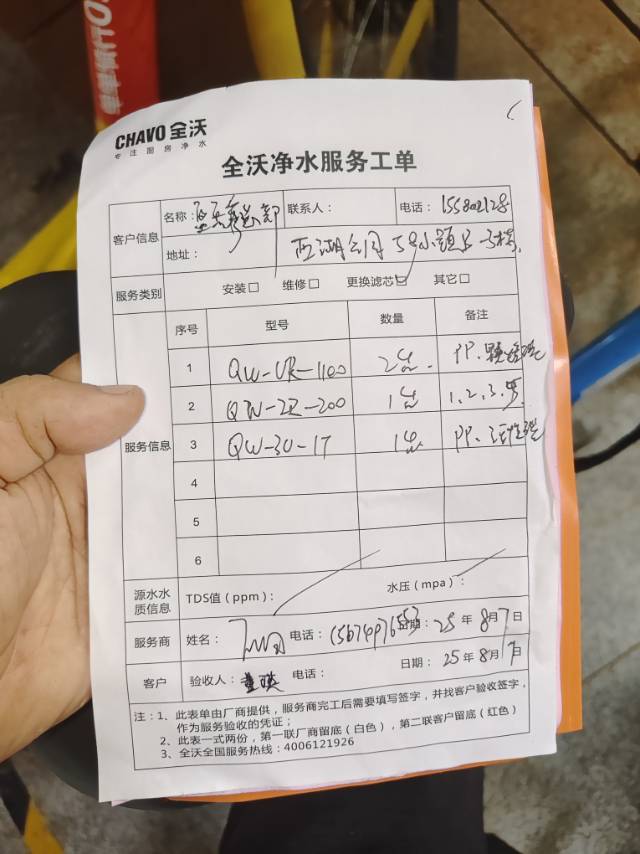 CHAVO 全沃
专注厨房净水
全沃净水服务工单
客户信息
名称:
联系人:
电话:
地址: 西湖公园
服务类别 安装□ 维修□ 更换滤芯□ 其它□
服务信息
序号 型号 数量 备注
1 QW-UR-1100 2台 PP.
2 QW-ZR-200 1台 1、2、3、
3 QW-3U-1T 1台 PP、活性炭
4
5
6
源水水质信息 TDS值(ppm): 水压(mpa):
服务商 姓名: 电话: 日期: 25年8月7日
客户 验收人: 电话: 日期: 25年8月7日
注:1、此表单由厂商提供,服务商完工后需要填写签字,并找客户验收签字,
作为服务验收的凭证;
2、此表一式两份,第一联厂商留底(白色),第二联客户留底(红色)
3、全沃全国服务热线:4006121926